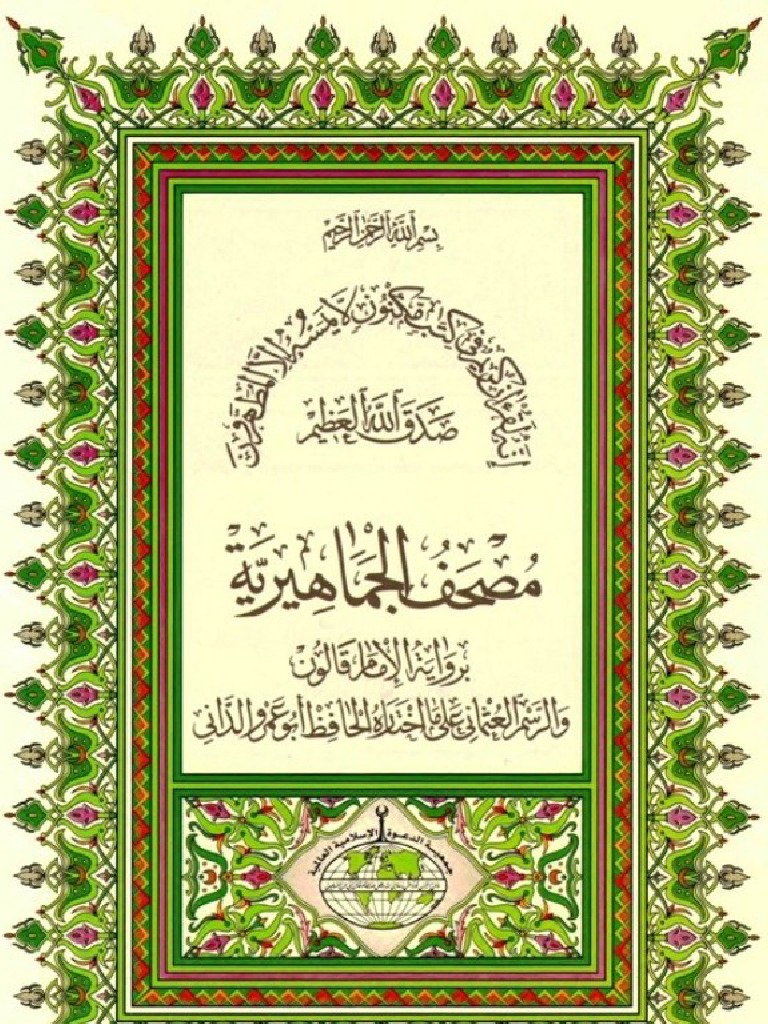 بِسْمِ اَللَّهِ اِلرَّحْمَٰنِ اِلرَّحِيمِ
إِنَّهُۥ لَقُرْءَانٌ كَرِيمٌ فِي كِتَٰبٍ مَّكْنُونٍ لَّا يَمَسُّهُۥٓ إِلَّا اَلْمُطَهَّرُونَ
صَدَقَ اَللَّهُ اُلْعَظِيمُ
مُصْحَفُ الْجَمَاهِيرِيَّةِ
بِرِوَايَةِ الْإِمَامِ قَالُونَ
وَالرَّسْمِ الْعُثْمَانِي عَلَى مَا اخْتَارَهُ الْحَافِظُ أَبُو عَمْرٍو الدَّانِي
جمعية الدعوة الإسلامية العالمية